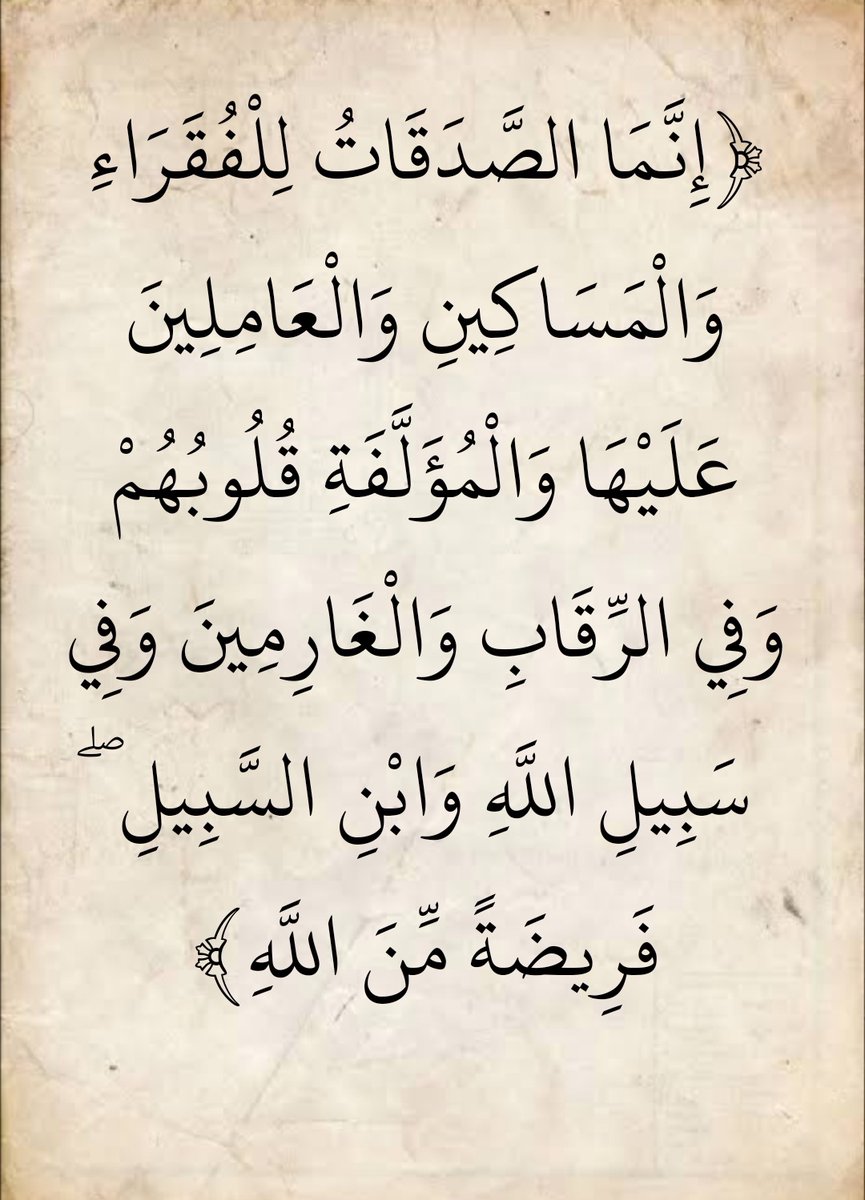 ﴿إِنَّمَا الصَّدَقَاتُ لِلْفُقَرَاءِ
وَالْمَسَاكِينِ وَالْعَامِلِينَ
عَلَيْهَا وَالْمُؤَلَّفَةِ قُلُوبُهُمْ
وَفِي الرِّقَابِ وَالْغَارِمِينَ وَفِي
سَبِيلِ اللَّهِ وَابْنِ السَّبِيلِ ۖ
فَرِيضَةً مِّنَ اللَّهِ﴾